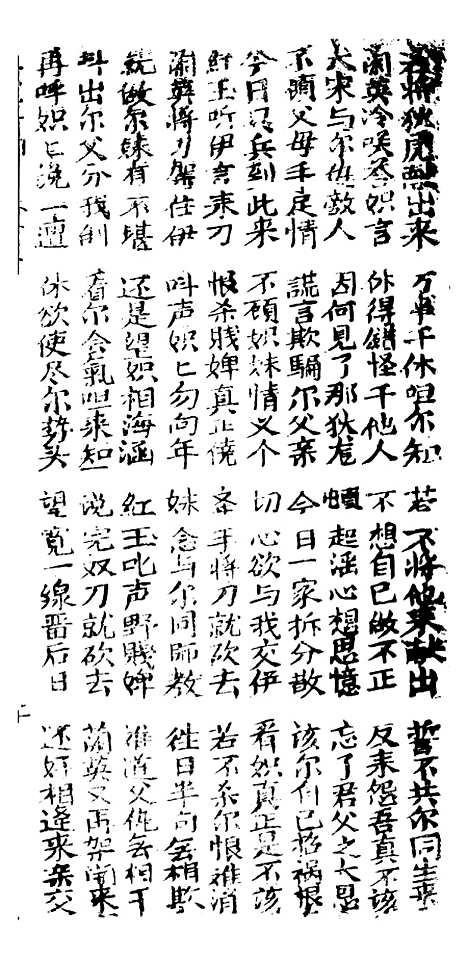 若将狄虎献出来 万事千休呾尔知 若不将他来献出 誓不共尔同生来
蘭英冷笑叫姐言 休得錯怪千他人 不想自己做不正 反来怨吾真不该
大宋与尔仇敌人 因何見了那狄龙 頓起淫心想思憶 忘了君父之大恩
不顾父母手定情 謊言欺騙尔父亲 今日一家拆分散 该尔自己招祸根
今日只兵刻此来 不顾姐妹情义个 切心欲与我交伊 看姐真正是不该
玉听伊言来刀 恨杀贱婢真正僥 手将刀就砍去 若不杀尔恨难消
蘭英将刀架住伊 叫声姐匕勿向年 妹念与尔同師教 往日半句無相欺
就做尔妹有不堪 还是望姐相海涵 紅玉叱声野贱婢 难道父仇無相干
斗出尔父分我刣 看尔無氣呾来知 说完双刀就砍去 蘭英又再架開来
再呼姐匕说一遭 休欲使尽尔势头 望寬一線晋后日 还好相逢来亲交